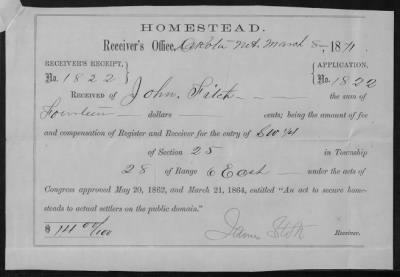 HOMESTEAD.
Receiver's Office, Dakota Neb. March 8, 1871.
RECEIVER'S RECEIPT, APPLICATION,
No. 1822 No. 1822
RECEIVED of John Fitch the sum of
Fourteen dollars cents; being the amount of fee
and compensation of Register and Receiver for the entry of SW 1/4
of Section 25 in Township
28 of Range 6 East under the acts of
Congress approved May 20, 1862, and March 21, 1864, entitled "An act to secure home-
steads to actual settlers on the public domain."
$ 14 00/100 James Receiver.